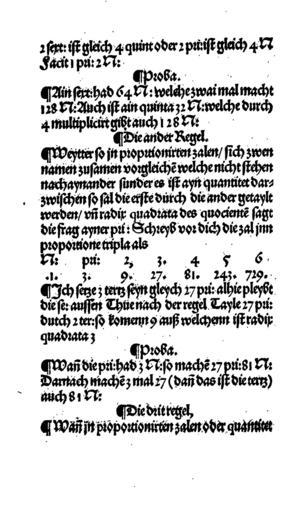 2 sext: ist gleich 4 quint oder 2 pri: ist gleich 4 N
Facit 1 pri: 2 N:
¶Proba.
¶Ain sext: had 64 N: welche zwai mal macht
128 N: Auch ist ain quinta 32 N: welche durch
4 multiplicirt gibt auch 128 N:
¶Die ander Regel.
¶Weytter so jn proportionirten zalen / sich zwen
namen zusamen vorgleichē welche nicht stehen
nach aynander sunder es ist ayn quantitet dar-
zwischen so sal die erste durch die ander getaylt
werden / vñ radix quadrata des quocientē sagt
die frag ayner pri: Schreyb vor dich die zal jnn
proportione tripla als
N: pri: 2, 3. 4 5 6
.1. 3. 9. 27. 81. 243. 729.
¶Ich setze 3 tertz seyn gleych 27 pri: alhie pleybt
die se: aussen Thüe nach der regel Tayle 27 pri:
durch 3 ter: so komenn 9 auß welchenn ist radix
quadrata 3
¶Proba.
¶Wañ die pri: had 3 N: so machē 27 pri: 81 N:
Darnach machē 3 mal 27 (dañ das ist die tertz)
auch 81 N:
¶Die drit regel,
¶Wañ jn proportionirten zalen oder quantitet